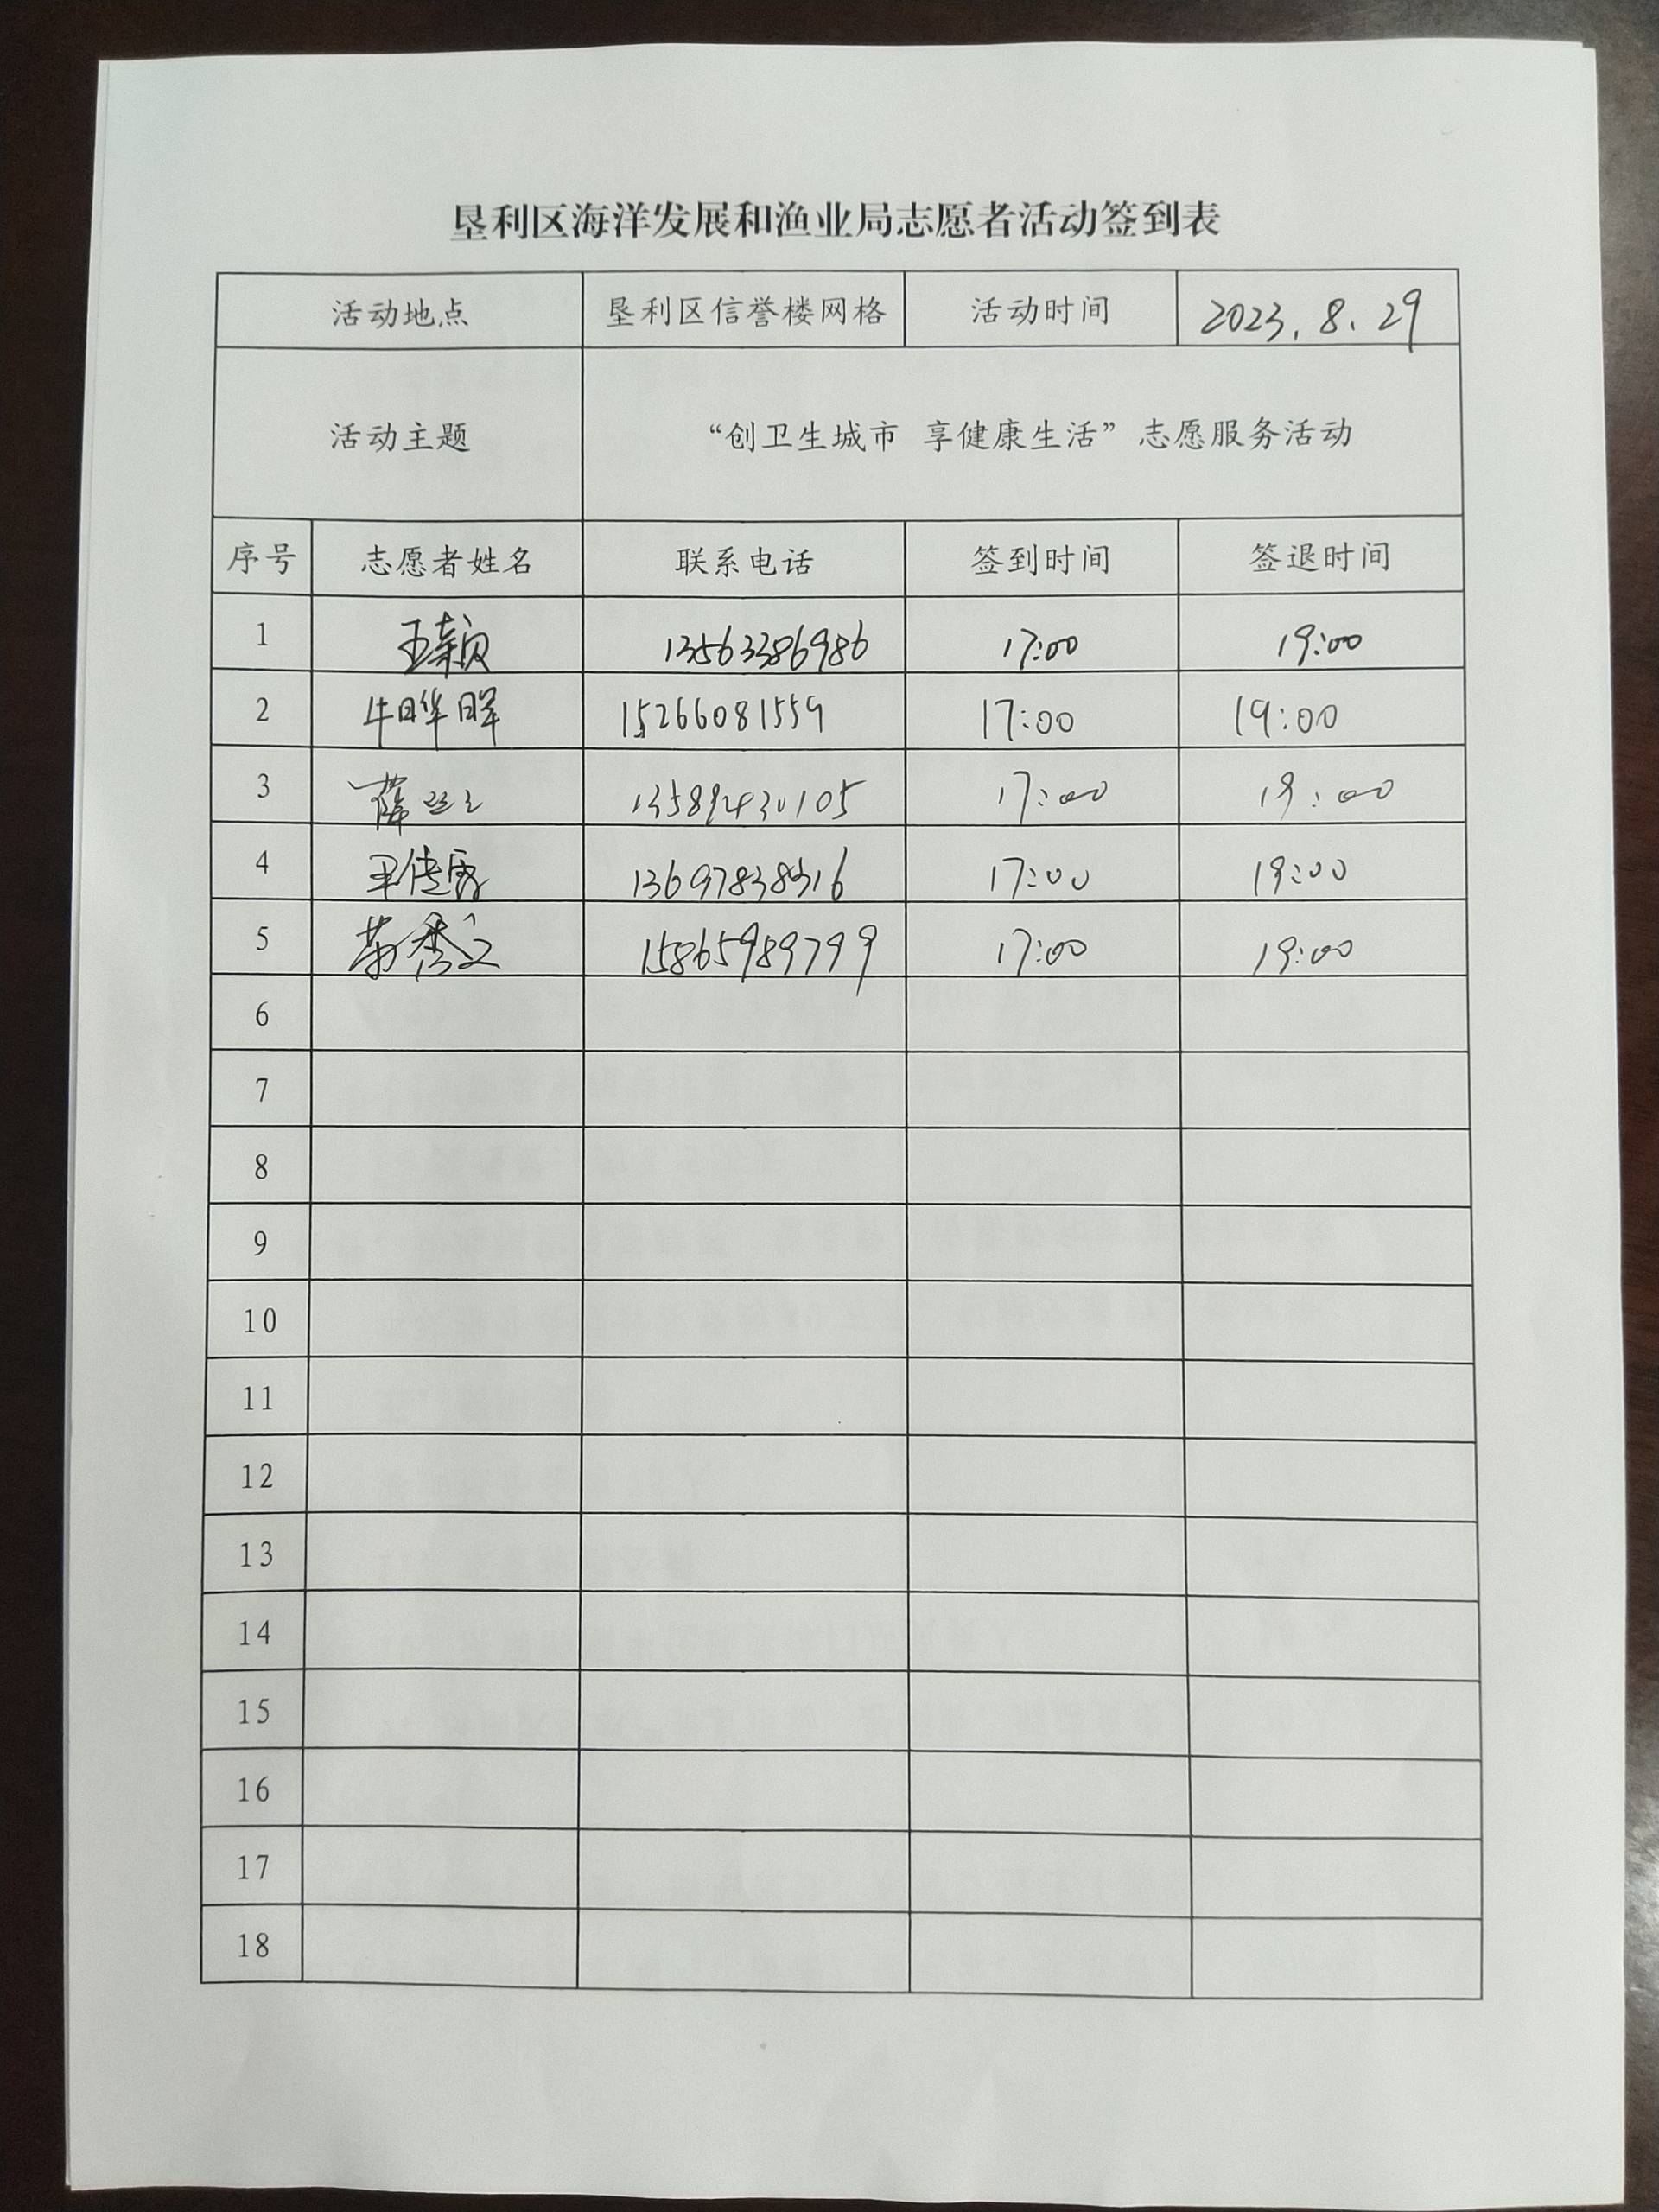 垦利区海洋发展和渔业局志愿者活动签到表
活动地点 垦利区信誉楼网格 活动时间 2023.8.29
活动主题 “创卫生城市 享健康生活”志愿服务活动
序号 志愿者姓名 联系电话 签到时间 签退时间
1 王颖 13563386986 17:00 19:00
2 牛晔晖 15266081559 17:00 19:00
3 薛 13589430105 17:00 19:00
4 13697838316 17:00 19:00
5 15865989799 17:00 19:00
6
7
8
9
10
11
12
13
14
15
16
17
18